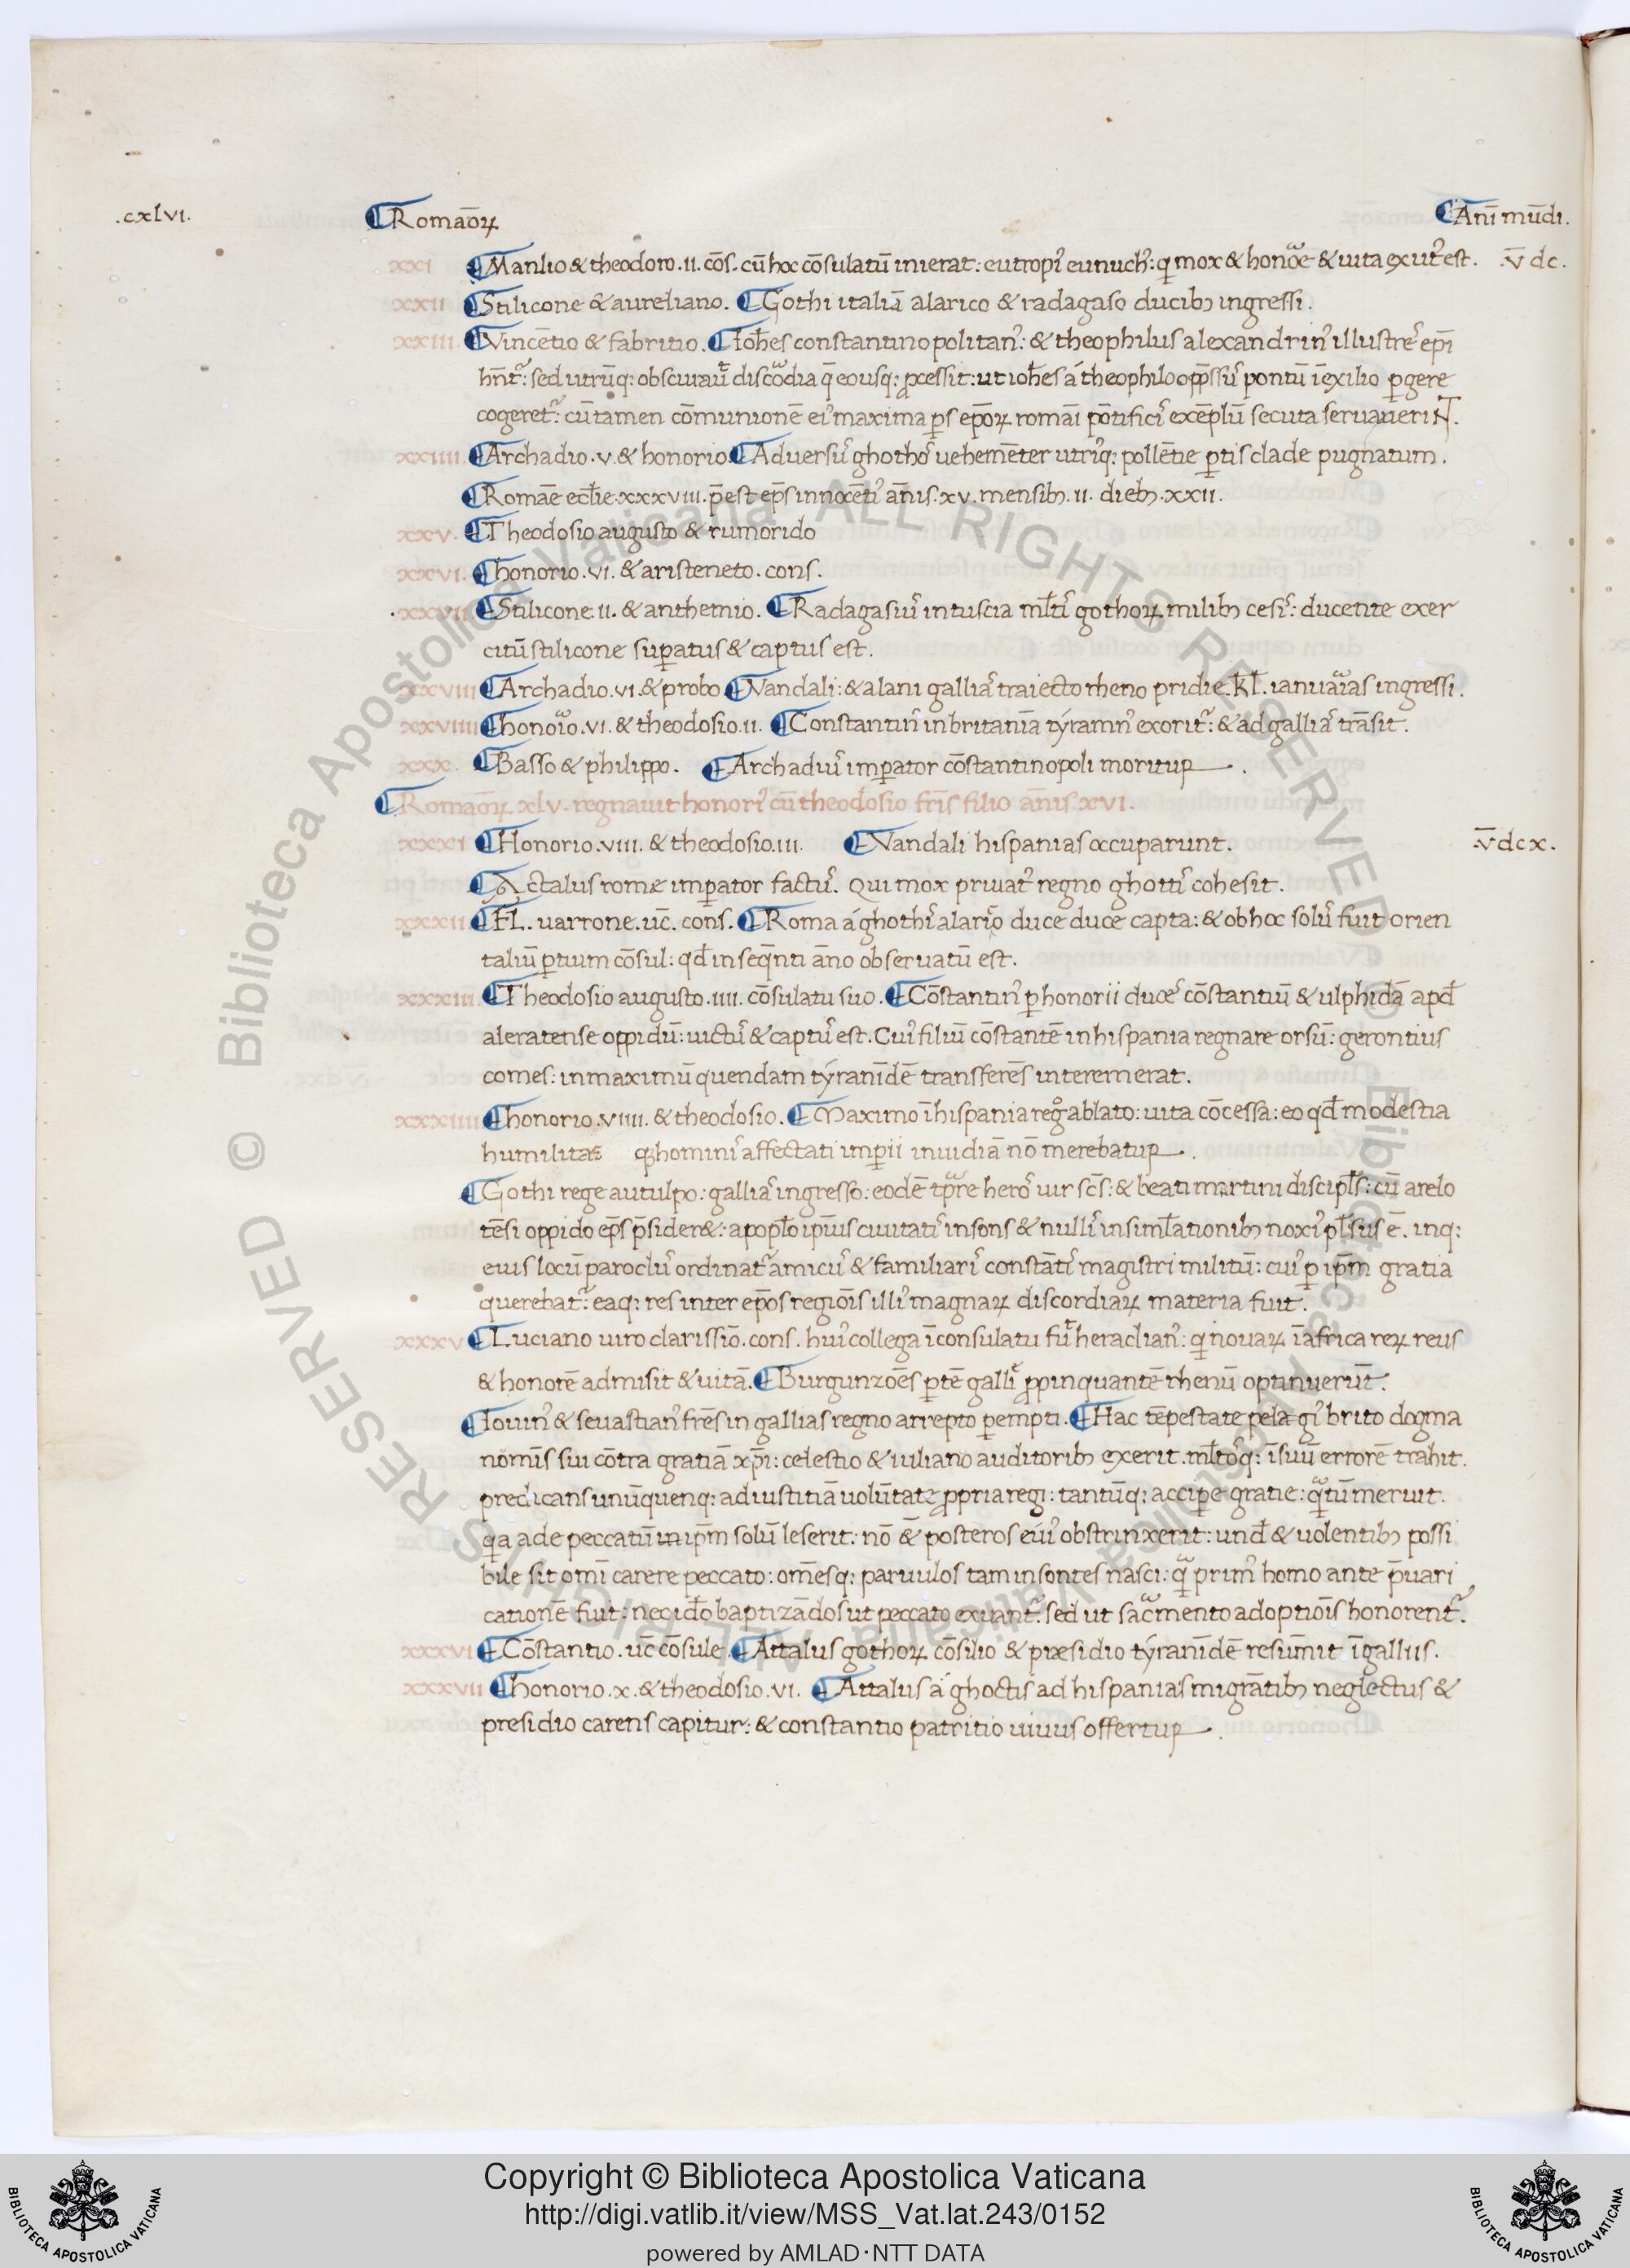 .cxlvi.
Romaōꝝ
Anī mūdi.
xxi Manlio & theodoro .ii. cōs. cū hoc cōsulatū inierat: eutropiꝰ eunuchꝰ: qi mox & honoͣe & uita exutꝰ est. .v̄ dc.
xxii Stilicone & aureliano. Gothi italiā alarico & radagaso ducibꝫ ingressi.
xxiii. Vincētio & fabritio. Ioh̄es constantinopolitanꝰ: & theophilus alexandrinꝰ illustreˢ ep̄i
hn̄tᷣ: sed utrūqꝫ: obscurauͭ discoͣdia q̄ eousqꝫ: ꝓcessit: ut ioh̄es á theophilo opp̄ssuˢ pontū ī exilio ꝑgere
cogeretᷣ: cū tamen cōmunionē eiꝰ maxima ꝑs ep̄oꝝ romāi pōtificiˢ exēplū secuta seruauerinT.
xxiiii Archadio .v. & honorio. Aduersuˢ ghothoˢ uehemēter utriˢqꝫ: pollētie ꝑtis clade pugnatum.
Romāe eccl̄ie .xxxviii. p̄est ep̄s innocētiꝰ ānis .xv. mensibꝫ .ii. diebꝫ .xxii.
xxv. Theodosio augusto & rumorido
xxvi. honorio .vi. & aristeneto. cons.
xxvii Stilicone .ii. & anthemio. Radagasiuˢ in tuscia ml̄tiˢ gothoꝝ milibꝫ cesiˢ: ducente exer
citū stilicone suꝑatus & captus est.
xxviii Archadio .vi. & probo Vandali: & alani galliaˢ traiecto rheno pridie. kl̄. ianuaͣias ingressi.
xxviiii honoͣio .vi. & theodosio .ii. Constantinꝰ in britaniā týramnꝰ exoritᷣ: & ad galliaˢ trāsit.
xxx. Basso & philippo. Archadiuˢ imꝑator cōstantinopoli moritur.
Romaōꝝ xlv. regnauit honoriꝰ cū theodosio fr̄is filio ānis .xvi.
xxxi Honorio .viii. & theodosio .iii. Vandali hispanias occuparunt. .v̄ dcx.
Actalus romæ imꝑator factuˢ. Qui mox priuatꝰ regno ghottiˢ cohesit.
xxxii FL. uarrone. uc̄. cons̄. Roma á ghothiˢ alarico duce duce capta: & ob hoc soluˢ fuit orien
taliū ꝑtium cōsul: qd̄ in seqn̄ti āno obseruatū est.
xxxiii Theodosio augusto .iiii. cōsulatu suo. Cōstantinꝰ ꝑ honorii duceˢ cōstantiū & ulphidā apd̄
aleratense oppidū: uictuˢ & captuˢ est. Cuiꝰ filiū cōstantē in hispania regnare orsū: gerontius
comes: in maximū quendam týranīdē transferēs interemerat.
xxxiiii honorio .viiii. & theodosio. Maximo ī hispania regͦ ablato: uita cōcessa: eo qd̄ modestia
humilitas qꝫ hominiˢ affectati imꝑii inuidiā nō merebatur.
Gothi rege autulpo: galliaˢ ingresso: eodē tp̄oͣe heroˢ uir sc̄s: & beati martini discipl̄s: cū arelo
tēsi oppido ep̄s p̄sider&: apopl̄o ipīus ciuitatiˢ insons & nulliˢ insiml̄ationibꝫ noxiꝰ pl̄sus ē. inqꝫ:
eius locū parocluˢ ordinatᷣ amicuˢ & familiariˢ constātiˢ magistri militū: cuiꝰ ꝑ ip̄m gratia
querebatᷣ: eaqꝫ: res inter ep̄os regiōis illiꝰ magnaꝝ discordiaꝝ materia fuit.
xxxv Luciano uiro clarissiō. cons. huiꝰ collega ī consulatu fuͭ heraclianꝰ: qi nouaꝝ ī africa reꝝ reus
& honorē admisit & uitā. Burgunzōes ꝑtē galliͤ ꝓpinquantē rhenū optinuerūt.
Iouinꝰ & seuastianꝰ fr̄es in gallias regno arrepto ꝑempti. Hac tēpestate pelagiꝰ brito dogma
nomīs sui cōtra gratiā xp̄i: celestio & iuliano auditoribꝫ exerit. ml̄toˢqꝫ: ī suū errorē trahit.
predicans unūquenqꝫ: ad iustitiā uolūtate ꝓpria regi: tantūqꝫ: acciꝑe gratie: qͣtū meruit.
qa ade peccatū in ip̄m solū leserit: nō &̄ posteros eiuꝰ obstrinxerit: und̄ & uolentibꝫ possi
bile sit omī carere peccato: omēsqꝫ: paruulos tam insontes nasci: qͣ primꝰ homo ante p̄uari
cationē fuit: neqid̄o baptizādos ut peccato exuantᷣ: sed ut sacͣmento adoptiōis honorentᷣ.
xxxvi Cōstantio. uc̄ cōsule. Attalus gothoꝝ cōsilio & præsidio týranīdē resūmit ī gallus.
xxxvii honorio .x. & theodosio .vi. Attalus á ghoctis ad hispanias migrātibꝫ neglectus &
presidio carens capitur: & constantio patritio uiuus offertur.
Copyright © Biblioteca Apostolica Vaticana
http://digi.vatlib.it/view/MSS_Vat.lat.243/0152
powered by AMLAD·NTT DATA
BIBLIOTECA APOSTOLICA VATICANA
BIBLIOTECA APOSTOLICA VATICANA
© Biblioteca Apostolica Vaticana ALL RIGHTS RESERVED
© Biblioteca Apostolica Vaticana ALL RIGHTS RESERVED